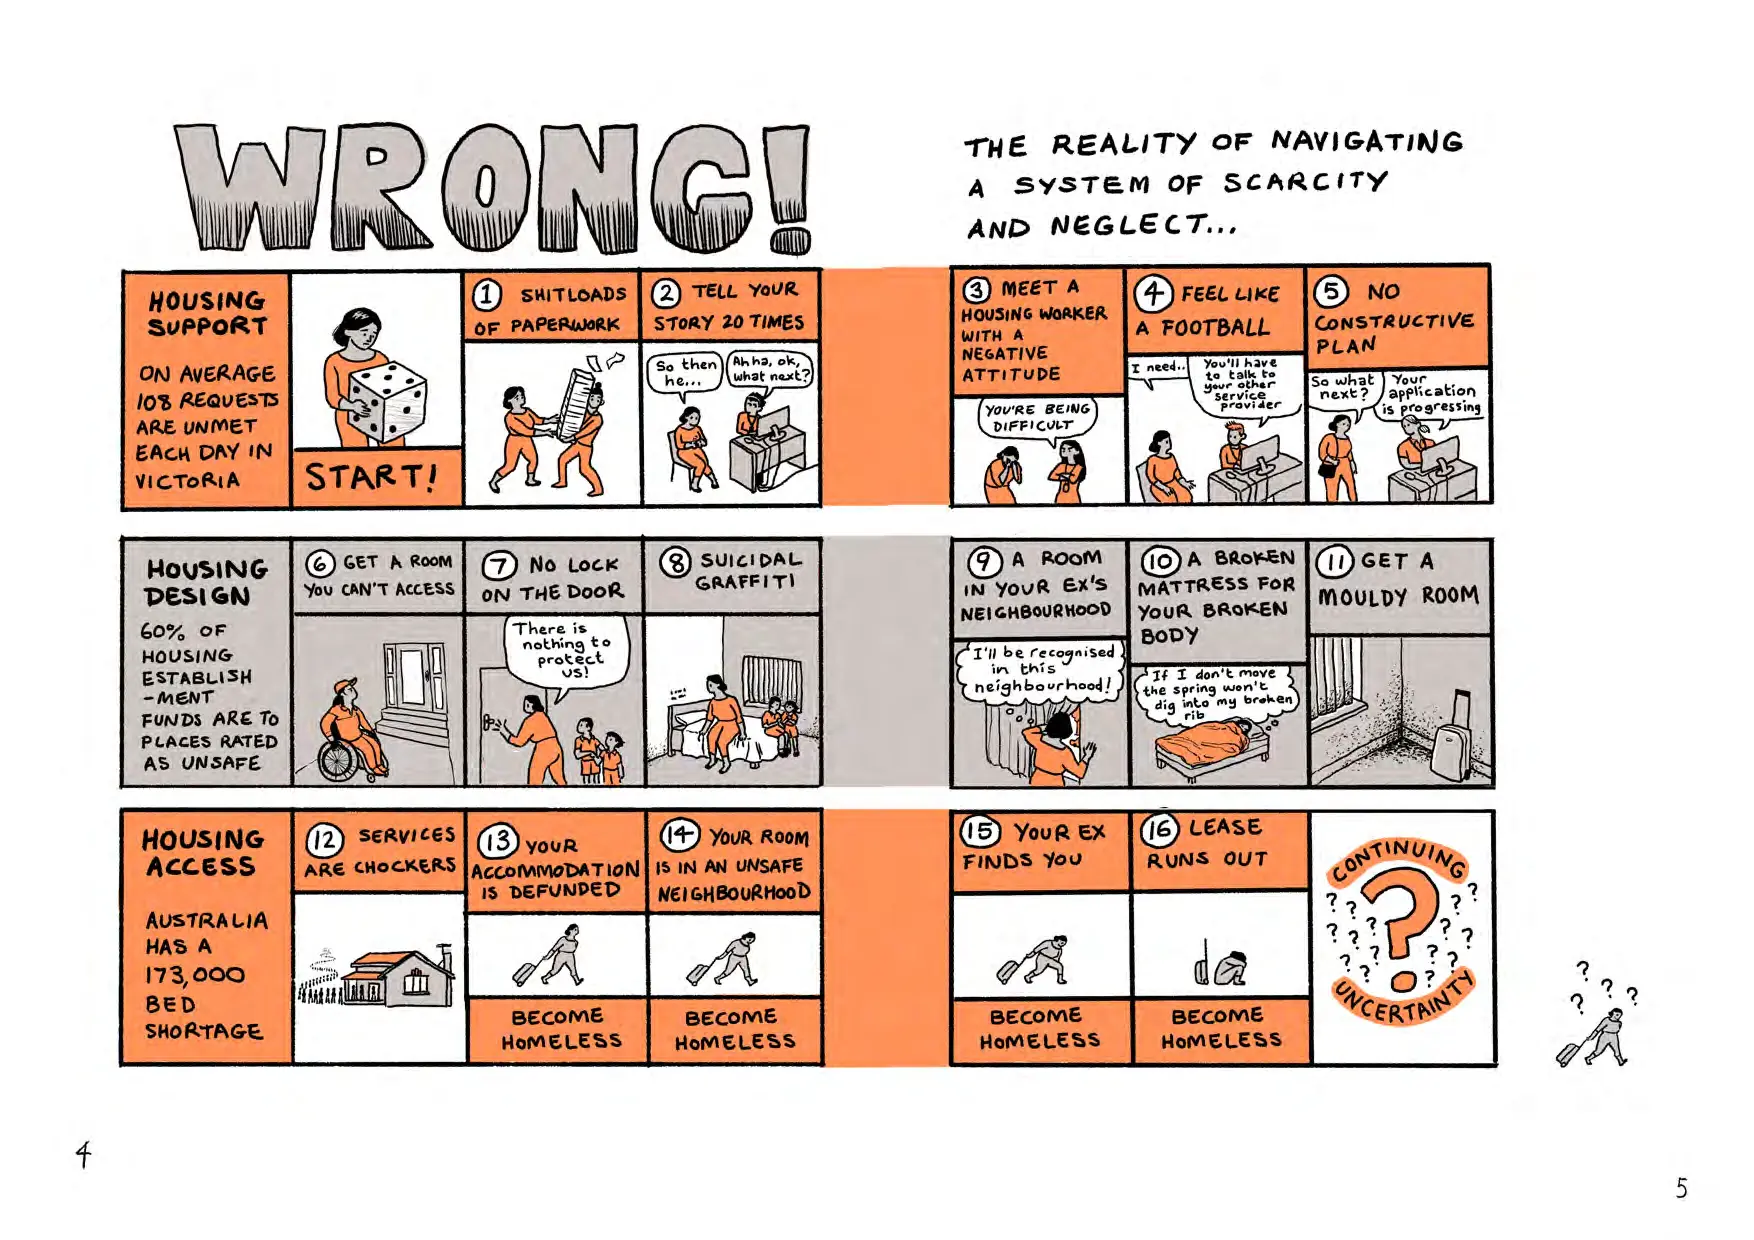 WRONG!
THE REALITY OF NAVIGATING
A SYSTEM OF SCARCITY
AND NEGLECT...
HOUSING
SUPPORT
ON AVERAGE
108 REQUESTS
ARE UNMET
EACH DAY IN
VICTORIA
START!
1 SHITLOADS
OF PAPERWORK
2 TELL YOUR
STORY 20 TIMES
So then
he...
Ah ha, ok,
what next?
3 MEET A
HOUSING WORKER
WITH A
NEGATIVE
ATTITUDE
YOU'RE BEING
DIFFICULT
4 FEEL LIKE
A FOOTBALL
I need..
You'll have
to talk to
your other
service
provider
5 NO
CONSTRUCTIVE
PLAN
So what
next?
Your
application
is progressing
HOUSING
DESIGN
60% OF
HOUSING
ESTABLISH
-MENT
FUNDS ARE TO
PLACES RATED
AS UNSAFE
6 GET A ROOM
YOU CAN'T ACCESS
7 NO LOCK
ON THE DOOR
There is
nothing to
protect
us!
8 SUICIDAL
GRAFFITI
9 A ROOM
IN YOUR EX'S
NEIGHBOURHOOD
I'll be recognised
in this
neighbourhood!
10 A BROKEN
MATTRESS FOR
YOUR BROKEN
BODY
If I don't move
the spring won't
dig into my broken
rib
11 GET A
MOULDY ROOM
HOUSING
ACCESS
AUSTRALIA
HAS A
173,000
BED
SHORTAGE
12 SERVICES
ARE CHOCKERS
13 YOUR
ACCOMMODATION
IS DEFUNDED
BECOME
HOMELESS
14 YOUR ROOM
IS IN AN UNSAFE
NEIGHBOURHOOD
BECOME
HOMELESS
15 YOUR EX
FINDS YOU
BECOME
HOMELESS
16 LEASE
RUNS OUT
BECOME
HOMELESS
CONTINUING
?
UNCERTAINTY
? ? ? ?
4
5